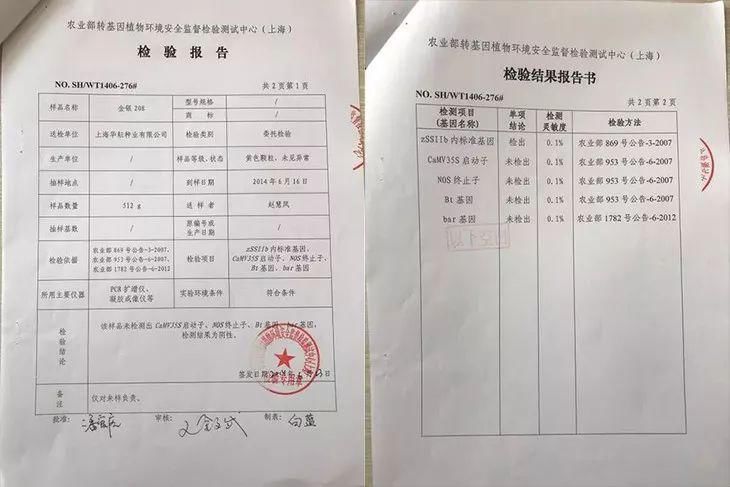 农业部转基因植物环境安全监督检验测试中心（上海）
检 验 报 告
NO. SH/WT1406-276# 共 2 页 第 1 页
样品名称 金银 208 型号规格 /
商 标 /
送检单位 上海华耘种业有限公司 检验类别 委托检验
生产单位 / 样品等级、状态 黄色颗粒，未见异常
抽样地点 / 到样日期 2014 年 6 月 16 日
样品数量 512 g 送 样 者 赵慧凤
抽样基数 / 原编号或
生产日期 /
检验依据 农业部 869 号公告-3-2007、
农业部 953 号公告-6-2007、
农业部 1782 号公告-6-2012
检验项目 zSSIIb 内标准基因、
CaMV35S 启动子、NOS 终止子、
Bt 基因、bar 基因
所用主要仪器 PCR 扩增仪、
凝胶成像仪等
实验环境条件 符合条件
检
验
结
论
该样品未检测出 CaMV35S 启动子、NOS 终止子、Bt 基因、bar 基因，
检测结果为阴性。
签发日期
备
注
仅对来样负责。
批准： 审核： 制表： 白蓝
农业部转基因植物环境安全监督检验测试中心（上海）
检验结果报告书
NO. SH/WT1406-276# 共 2 页 第 2 页
检测项目
(基因名称)
单项
结论
检测
灵敏度
检验方法
zSSIIb 内标准基因 检出 0.1% 农业部 869 号公告-3-2007
CaMV35S 启动子 未检出 0.1% 农业部 953 号公告-6-2007
NOS 终止子 未检出 0.1% 农业部 953 号公告-6-2007
Bt 基因 未检出 0.1% 农业部 953 号公告-6-2007
bar 基因 未检出 0.1% 农业部 1782 号公告-6-2012
以下空白